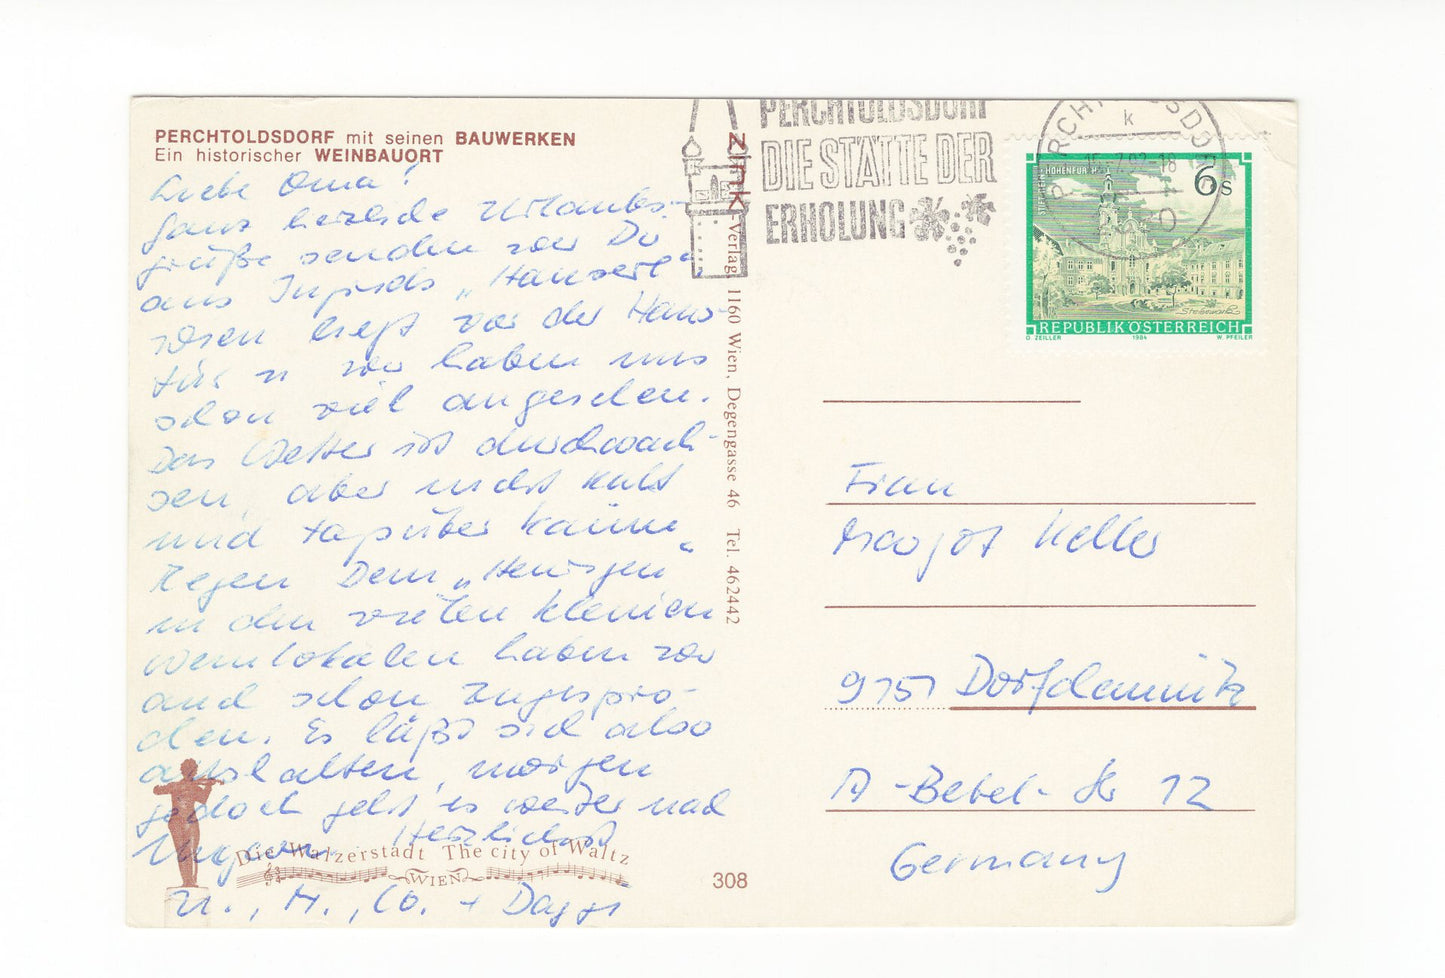 PERCHTOLDSDORF mit seinen BAUWERKEN
Ein historischer WEINBAUORT
Liebe Oma!
Ganz herzliche Urlaubs-
grüße senden wir Dir
aus Ingrids „Hauserl",
Wien liegt vor der Haus-
tür u. wir haben uns
schon viel angesehen.
Das Wetter ist durchwach-
sen, aber nicht kalt
und tagsüber kaum
Regen. Dem „Heurigen"
in den vielen kleinen
Weinlokalen haben wir
auch schon zugespro-
chen. Es läßt sich also
aushalten, morgen
jedoch geht es weiter nach
Ungarn. Herzlichst
U., M., Co. + Daggi
Die Walzerstadt The city of Waltz
WIEN
308
zink -Verlag, 1160 Wien, Degengasse 46 Tel. 462442
PERCHTOLDSDORF
DIE STÄTTE DER
ERHOLUNG
PERCHTOLDSDORF
k
STIFT REIN-HOHENFURTH
6 S
REPUBLIK ÖSTERREICH
O. ZEILLER 1984 W. PFEILER
Frau
Margot Keller
9151 Dorfchemnitz
A.-Bebel-Str 12
Germany